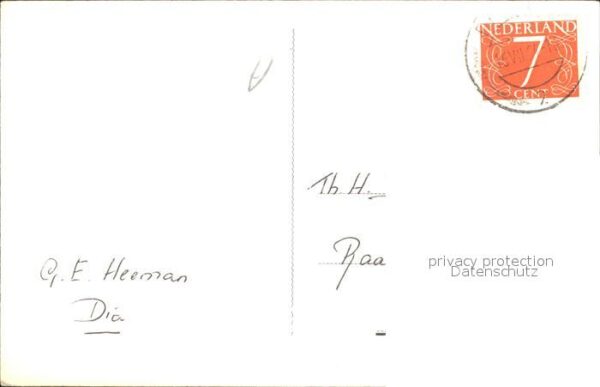 NEDERLAND
7
CENT
Th H.
Raa
privacy protection
Datenschutz
G. E. Heeman
Dia